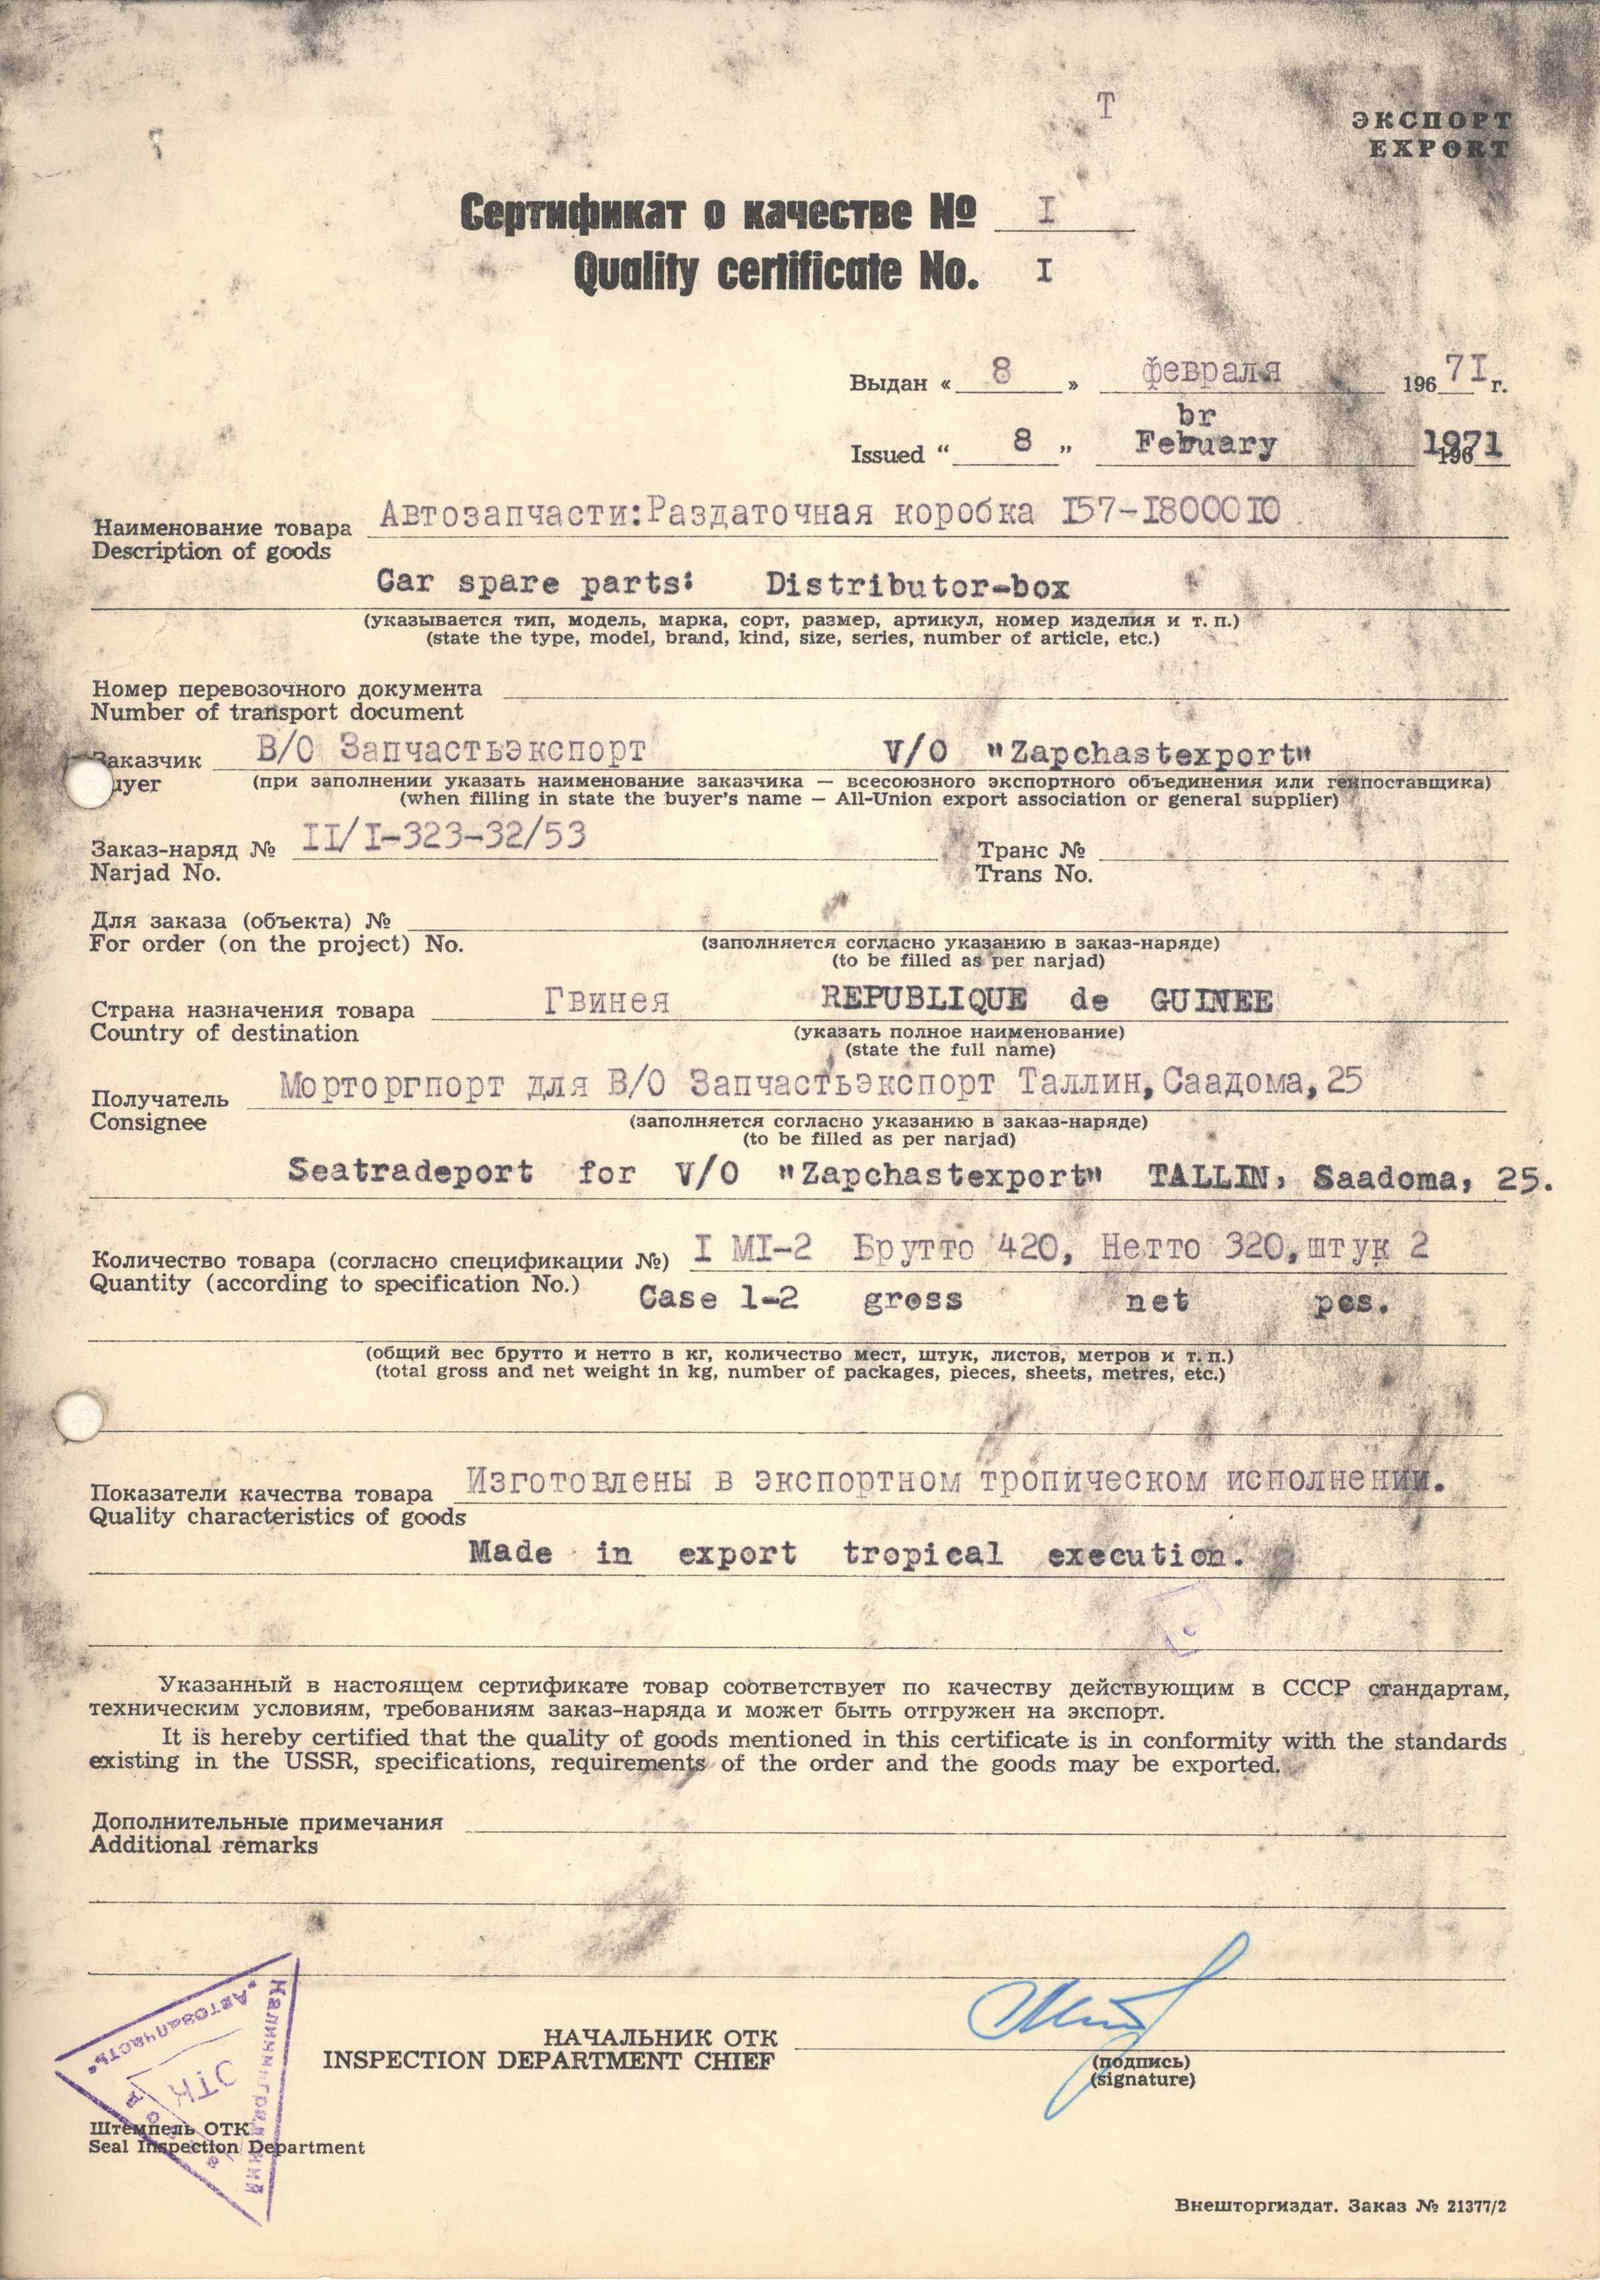 Т
ЭКСПОРТ
EXPORT
Сертификат о качестве № I
Quality certificate No. I
Выдан « 8 » февраля 196 7I г.
br
Issued “ 8 „ Febuary 196 1971
Автозапчасти:Раздаточная коробка I57-I8000I0
Наименование товара
Description of goods
Car spare parts: Distributor-box
(указывается тип, модель, марка, сорт, размер, артикул, номер изделия и т. п.)
(state the type, model, brand, kind, size, series, number of article, etc.)
Номер перевозочного документа
Number of transport document
Заказчик В/О Запчастьэкспорт V/O "Zapchastexport"
uyer (при заполнении указать наименование заказчика — всесоюзного экспортного объединения или генпоставщика)
(when filling in state the buyer's name — All-Union export association or general supplier)
Заказ-наряд № II/I-323-32/53 Транс №
Narjad No. Trans No.
Для заказа (объекта) №
For order (on the project) No. (заполняется согласно указанию в заказ-наряде)
(to be filled as per narjad)
Страна назначения товара Гвинея REPUBLIQUE de GUINEE
Country of destination (указать полное наименование)
(state the full name)
Получатель Морторгпорт для В/О Запчастьэкспорт Таллин, Саадома, 25
Consignee (заполняется согласно указанию в заказ-наряде)
(to be filled as per narjad)
Seatradeport for V/O "Zapchastexport" TALLIN, Saadoma, 25.
Количество товара (согласно спецификации №) I MI-2 Брутто 420, Нетто 320, штук 2
Quantity (according to specification No.) Case 1-2 gross net pcs.
(общий вес брутто и нетто в кг, количество мест, штук, листов, метров и т. п.)
(total gross and net weight in kg, number of packages, pieces, sheets, metres, etc.)
Показатели качества товара Изготовлены в экспортном тропическом исполнении.
Quality characteristics of goods
Made in export tropical execution.
Указанный в настоящем сертификате товар соответствует по качеству действующим в СССР стандартам,
техническим условиям, требованиям заказ-наряда и может быть отгружен на экспорт.
It is hereby certified that the quality of goods mentioned in this certificate is in conformity with the standards
existing in the USSR, specifications, requirements of the order and the goods may be exported.
Дополнительные примечания
Additional remarks
НАЧАЛЬНИК ОТК
INSPECTION DEPARTMENT CHIEF
(подпись)
(signature)
Калининградский
завод
"Автозапчасть"
ОТК
Штемпель ОТК
Seal Inspection Department
Внешторгиздат. Заказ № 21377/2